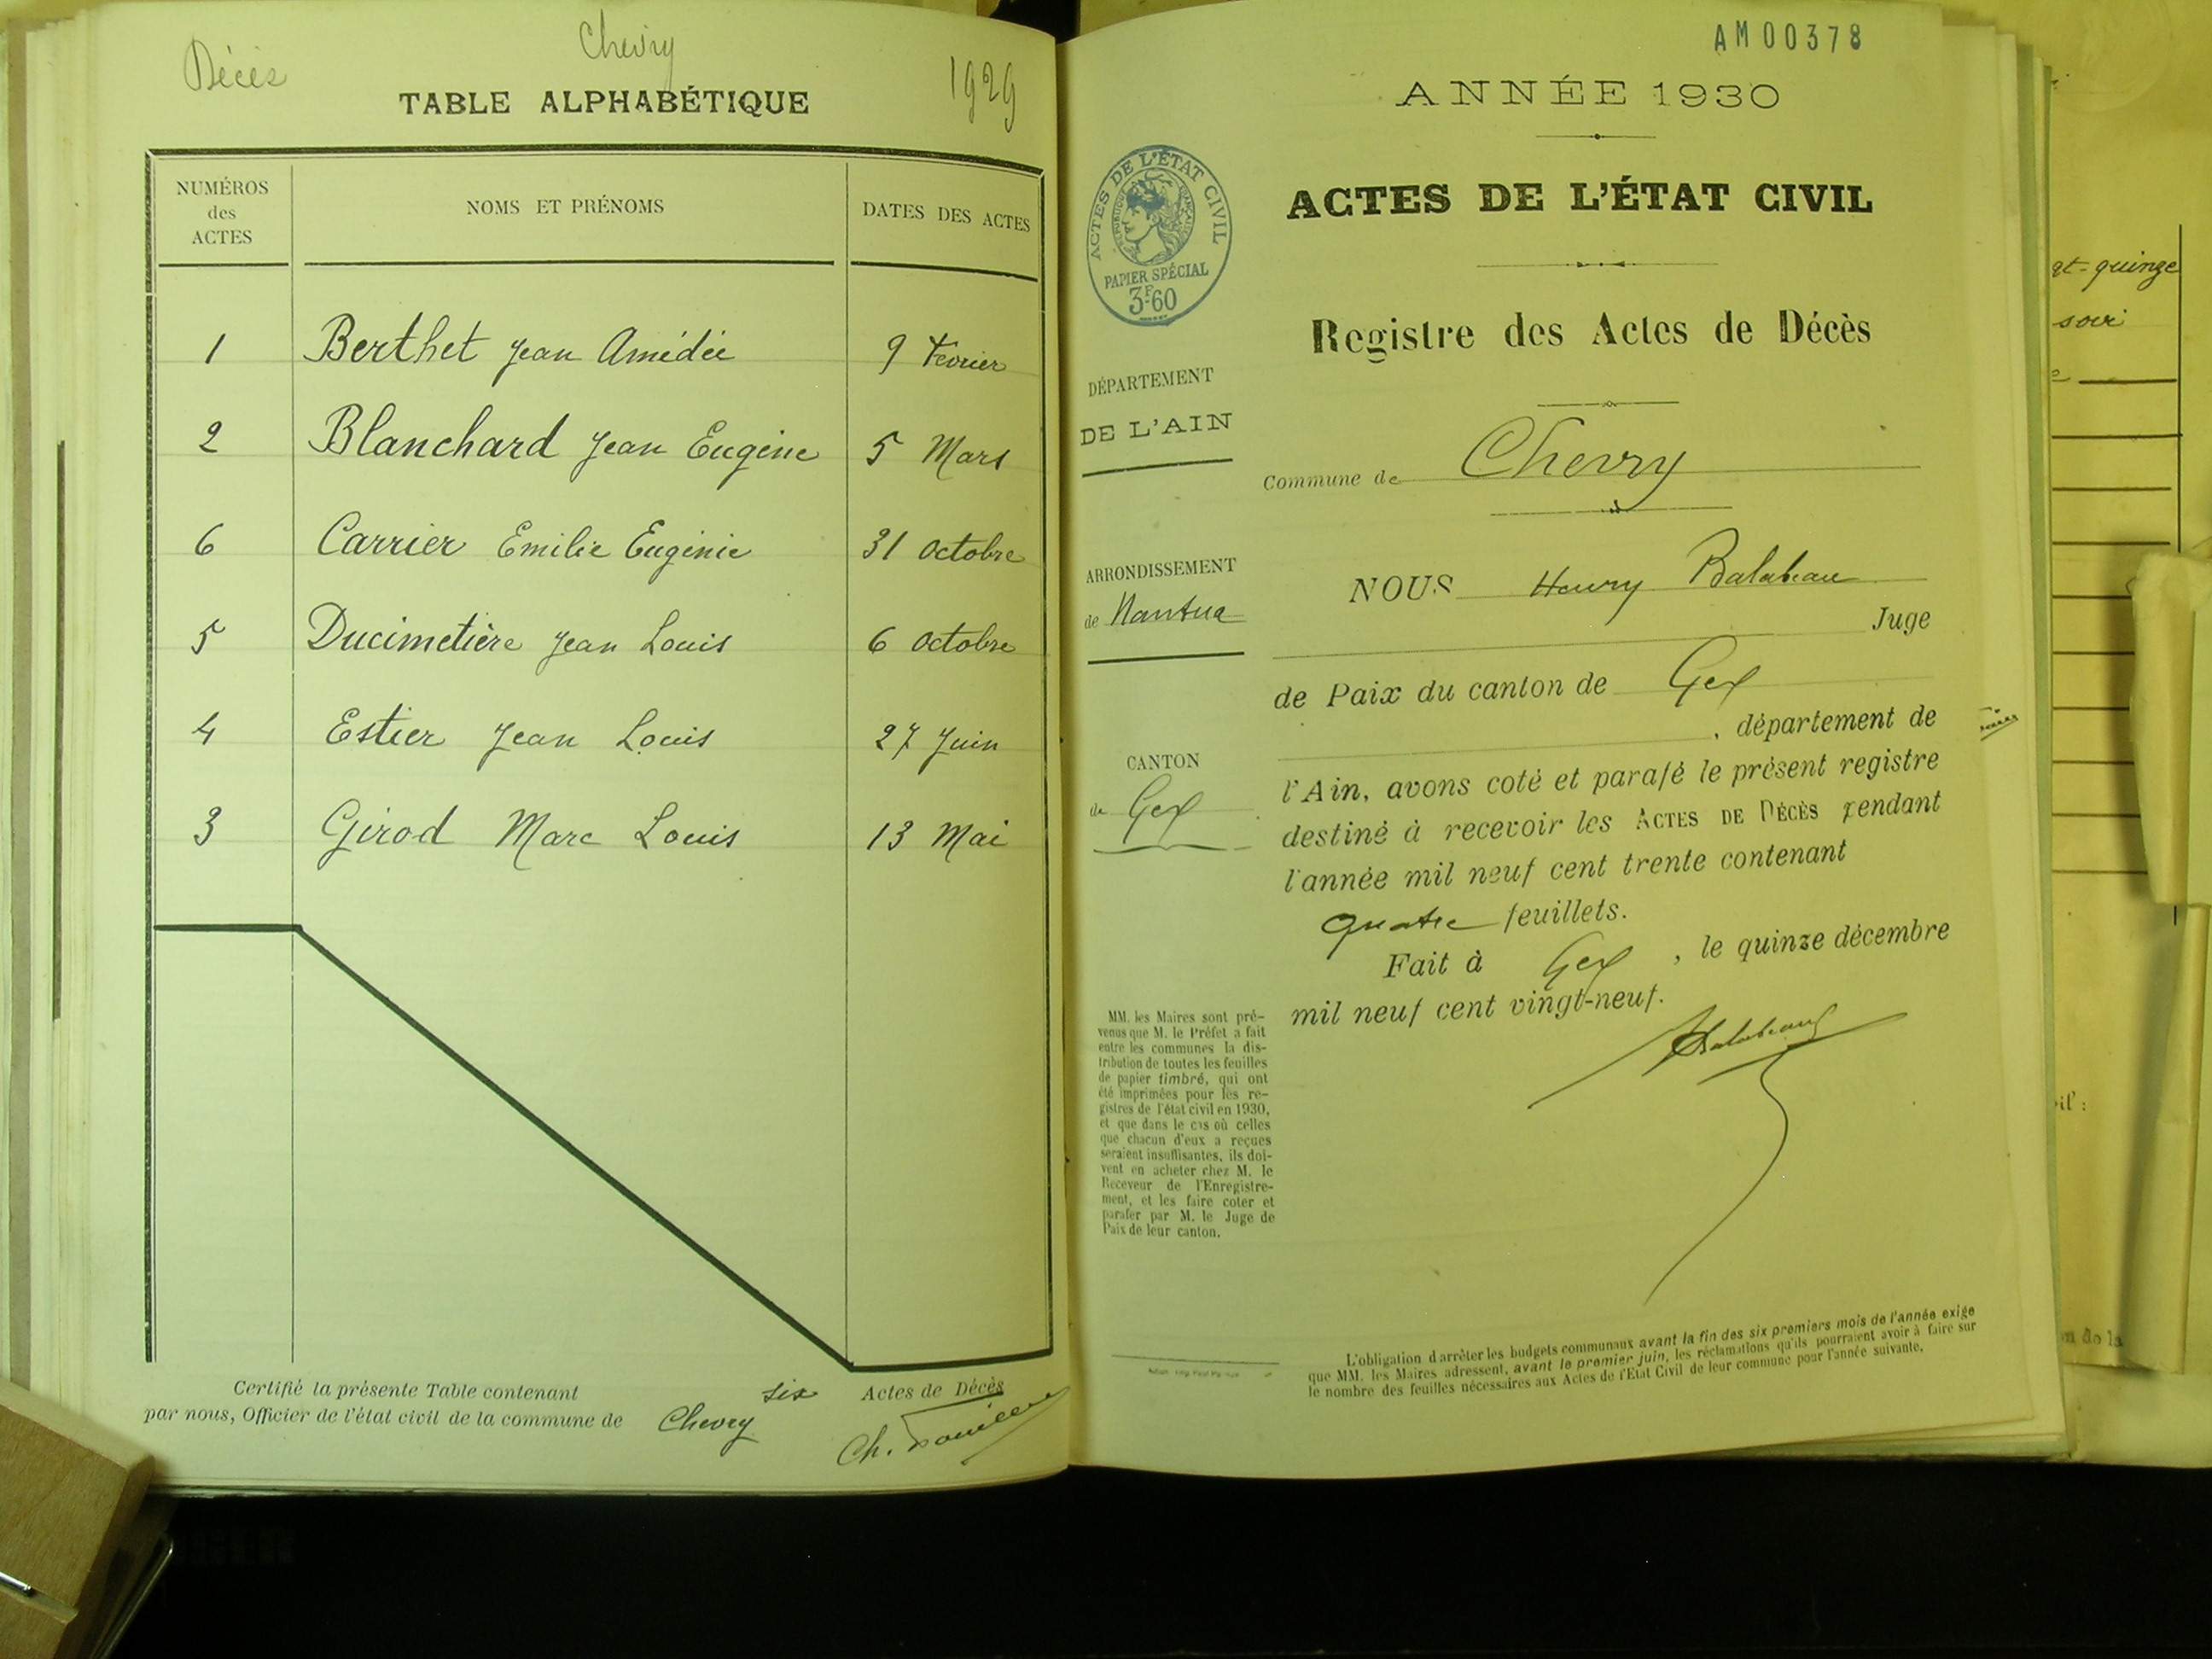 Décès
Chevry
1929
TABLE ALPHABÉTIQUE
NUMÉROS
des
ACTES
NOMS ET PRÉNOMS
DATES DES ACTES
1 Berthet Jean Amédée 9 Février
2 Blanchard Jean Eugène 5 Mars
6 Carrier Emilie Eugénie 31 Octobre
5 Ducimetière Jean Louis 6 Octobre
4 Estier Jean Louis 27 Juin
3 Girod Marc Louis 13 Mai
Certifié la présente Table contenant six Actes de Décès
par nous, Officier de l'état civil de la commune de Chevry
Ch.
AM00378
ANNÉE 1930
ACTES DE L'ÉTAT CIVIL
Registre des Actes de Décès
ACTES DE L'ÉTAT CIVIL
RÉPUBLIQUE FRANÇAISE
PAPIER SPÉCIAL
3F60
DÉPARTEMENT
DE L'AIN
ARRONDISSEMENT
de Nantua
CANTON
de Gex
MM. les Maires sont pré-
venus que M. le Préfet a fait
entre les communes la dis-
tribution de toutes les feuilles
de papier timbré, qui ont
été imprimées pour les re-
gistres de l'état civil en 1930,
et que dans le cas où celles
que chacun d'eux a reçues
seraient insuffisantes, ils doi-
vent en acheter chez M. le
Receveur de l'Enregistre-
ment, et les faire coter et
parafer par M. le Juge de
Paix de leur canton.
Commune de Chevry
NOUS Henry Balabeau
Juge
de Paix du canton de Gex
, département de
l'Ain, avons coté et parafé le présent registre
destiné à recevoir les ACTES DE DÉCÈS pendant
l'année mil neuf cent trente contenant
quatre feuillets.
Fait à Gex , le quinze décembre
mil neuf cent vingt-neuf.
Balabeau
L'obligation d'arrêter les budgets communaux avant la fin des six premiers mois de l'année exige
que MM. les Maires adressent, avant le premier juin, les réclamations qu'ils pourraient avoir à faire sur
le nombre des feuilles nécessaires aux Actes de l'Etat Civil de leur commune pour l'année suivante.
gt-quinze
soir